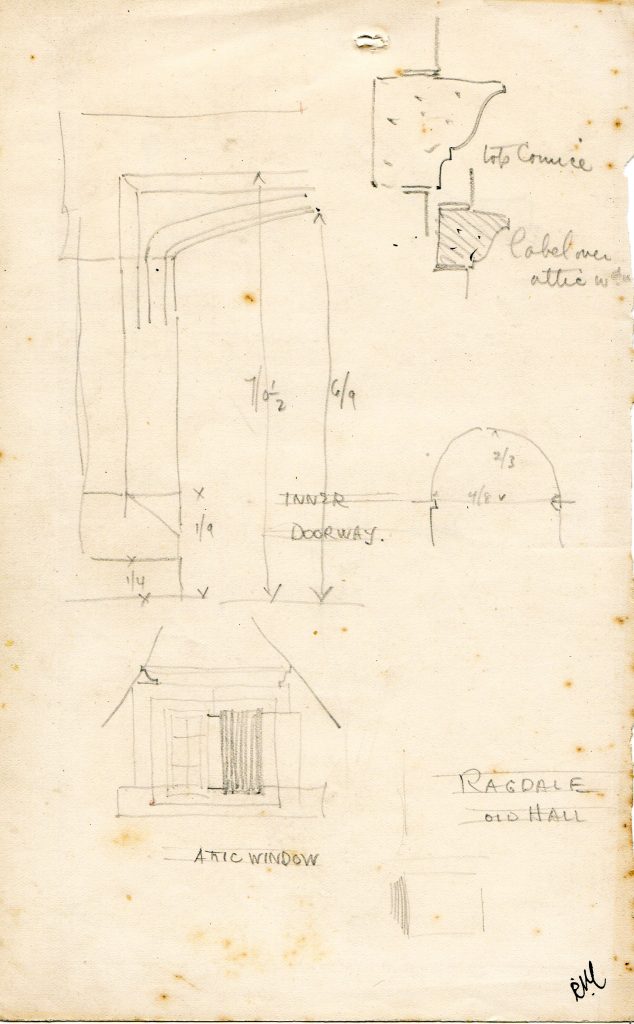 top Cornice
label over
attic wdw
7/0½
6/9
2/3
4/8
INNER
DOORWAY.
1/9
1/4
RAGDALE
OLD HALL
ATTIC WINDOW